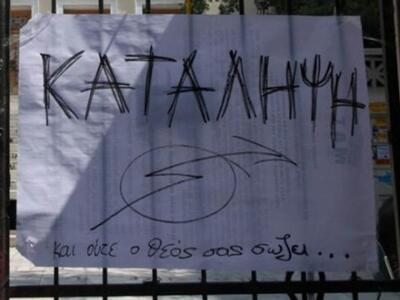 ΚΑΤΑΛΗΨΗ
και ούτε ο θεός σας σώζει...